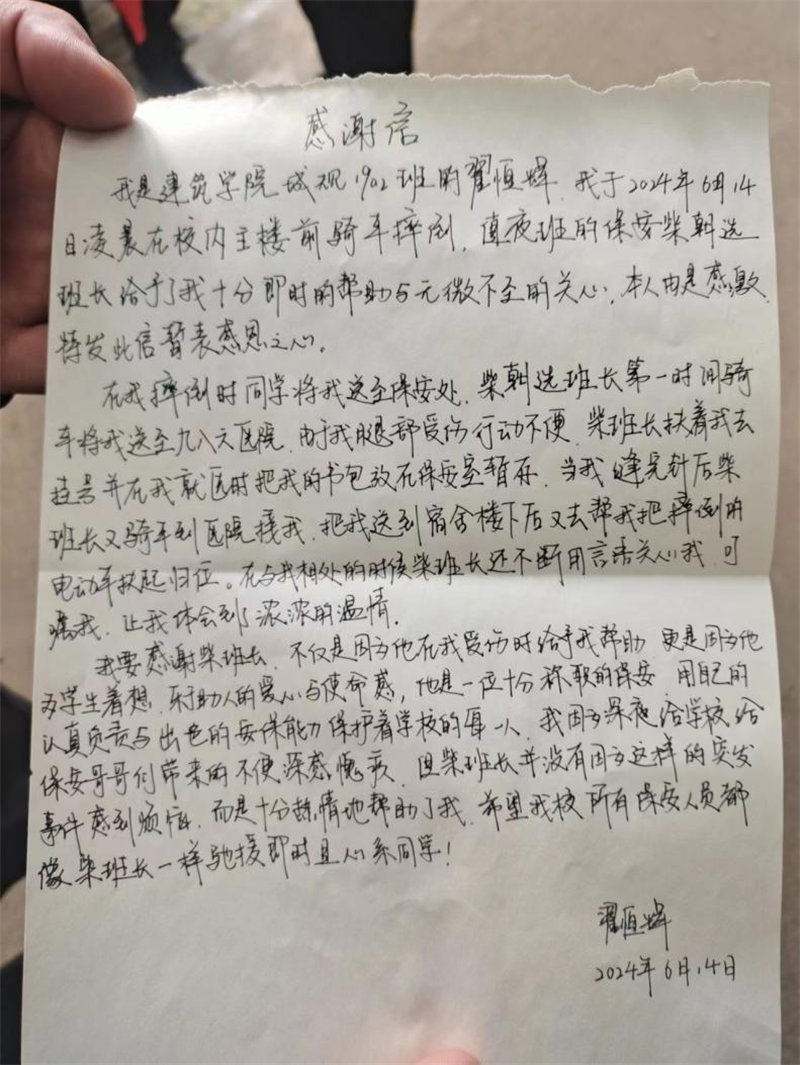 感谢信
我是建筑学院城规1902班的翟恒辉，我于2024年6月14
日凌晨在校内主楼前骑车摔倒，值夜班的保安柴朝选
班长给予了我十分即时的帮助与无微不至的关心，本人由是感激，
特发此信暂表感恩之心。
在我摔倒时同学将我送至保安处，柴朝选班长第一时间骑
车将我送至九八六医院，由于我腿部受伤行动不便，柴班长扶着我去
挂号并在我就医时把我的书包放在保安室暂存，当我缝完针后柴
班长又骑车到医院接我，把我送到宿舍楼下后又去帮我把摔倒的
电动车扶起归位。在与我相处的时候柴班长还不断用言语关心我，叮
嘱我，让我体会到了浓浓的温情。
我要感谢柴班长，不仅是因为他在我受伤时给予我帮助，更是因为他
为学生着想，乐于助人的爱心与使命感，他是一位十分称职的保安，用自己的
认真负责与出色的安保能力保护着学校的每一人，我因为深夜给学校给
保安哥哥们带来的不便深感愧疚，但柴班长并没有因为这样的突发
事件感到烦恼，而是十分热情地帮助了我，希望我校所有保安人员都
像柴班长一样驰援即时且心系同学！
翟恒辉
2024年6月14日